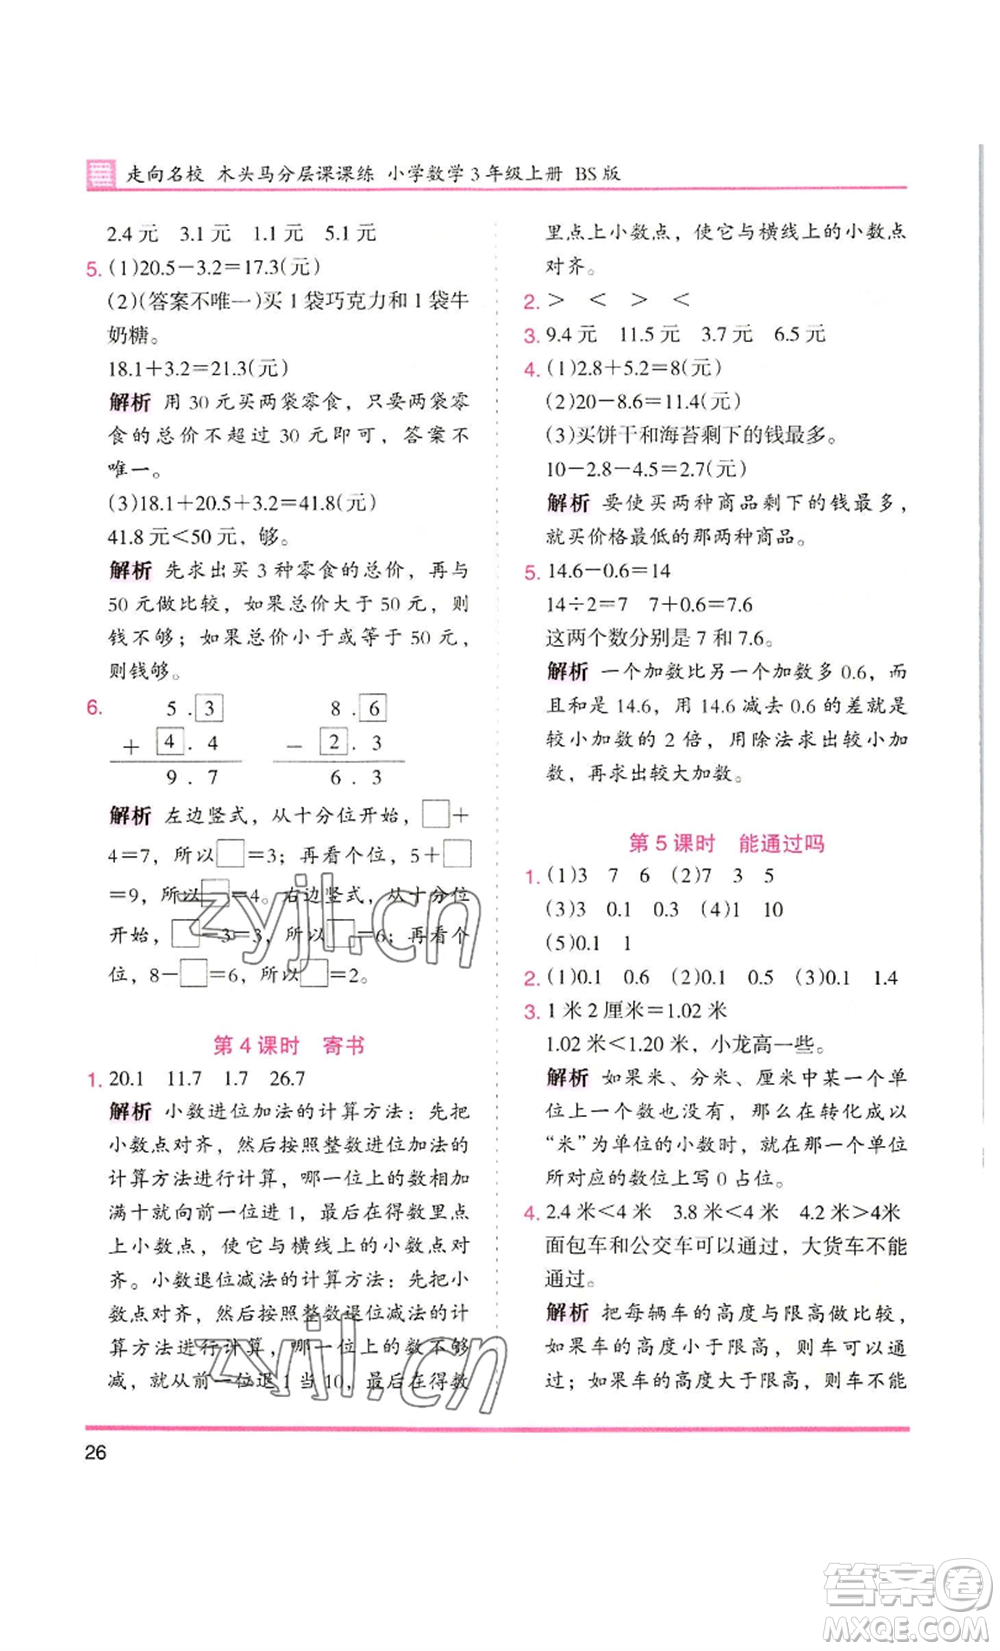 走向名校 木头马分层课课练 小学数学3年级上册 BS版
2.4元 3.1元 1.1元 5.1元
5. (1)20.5－3.2＝17.3(元)
(2)(答案不唯一)买1袋巧克力和1袋牛
奶糖。
18.1＋3.2＝21.3(元)
解析 用30元买两袋零食，只要两袋零
食的总价不超过30元即可，答案不
唯一。
(3)18.1＋20.5＋3.2＝41.8(元)
41.8元＜50元，够。
解析 先求出买3种零食的总价，再与
50元做比较，如果总价大于50元，则
钱不够；如果总价小于或等于50元，
则钱够。
6. 5.3 8.6
＋ 4.4 － 2.3
9.7 6.3
解析 左边竖式，从十分位开始，□＋
4＝7，所以□＝3；再看个位，5＋□
＝9，所以□＝4。右边竖式，从十分位
开始，□－3＝3，所以□＝6；再看个
位，8－□＝6，所以□＝2。
第4课时 寄书
1. 20.1 11.7 1.7 26.7
解析 小数进位加法的计算方法：先把
小数点对齐，然后按照整数进位加法的
计算方法进行计算，哪一位上的数相加
满十就向前一位进1，最后在得数里点
上小数点，使它与横线上的小数点对
齐。小数退位减法的计算方法：先把小
数点对齐，然后按照整数退位减法的计
算方法进行计算，哪一位上的数不够
减，就从前一位退1当10，最后在得数
里点上小数点，使它与横线上的小数点
对齐。
2. ＞ ＜ ＞ ＜
3. 9.4元 11.5元 3.7元 6.5元
4. (1)2.8＋5.2＝8(元)
(2)20－8.6＝11.4(元)
(3)买饼干和海苔剩下的钱最多。
10－2.8－4.5＝2.7(元)
解析 要使买两种商品剩下的钱最多，
就买价格最低的那两种商品。
5. 14.6－0.6＝14
14÷2＝7 7＋0.6＝7.6
这两个数分别是7和7.6。
解析 一个加数比另一个加数多0.6，而
且和是14.6，用14.6减去0.6的差就是
较小加数的2倍，用除法求出较小加
数，再求出较大加数。
第5课时 能通过吗
1. (1)3 7 6 (2)7 3 5
(3)3 0.1 0.3 (4)1 10
(5)0.1 1
2. (1)0.1 0.6 (2)0.1 0.5 (3)0.1 1.4
3. 1米2厘米＝1.02米
1.02米＜1.20米，小龙高一些。
解析 如果米、分米、厘米中某一个单
位上一个数也没有，那么在转化成以
“米”为单位的小数时，就在那一个单位
所对应的数位上写0占位。
4. 2.4米＜4米 3.8米＜4米 4.2米＞4米
面包车和公交车可以通过，大货车不能
通过。
解析 把每辆车的高度与限高做比较，
如果车的高度小于限高，则车可以通
过；如果车的高度大于限高，则车不能
26
zyjl.cn
zyjl.cn
答案卷
MXQE.COM